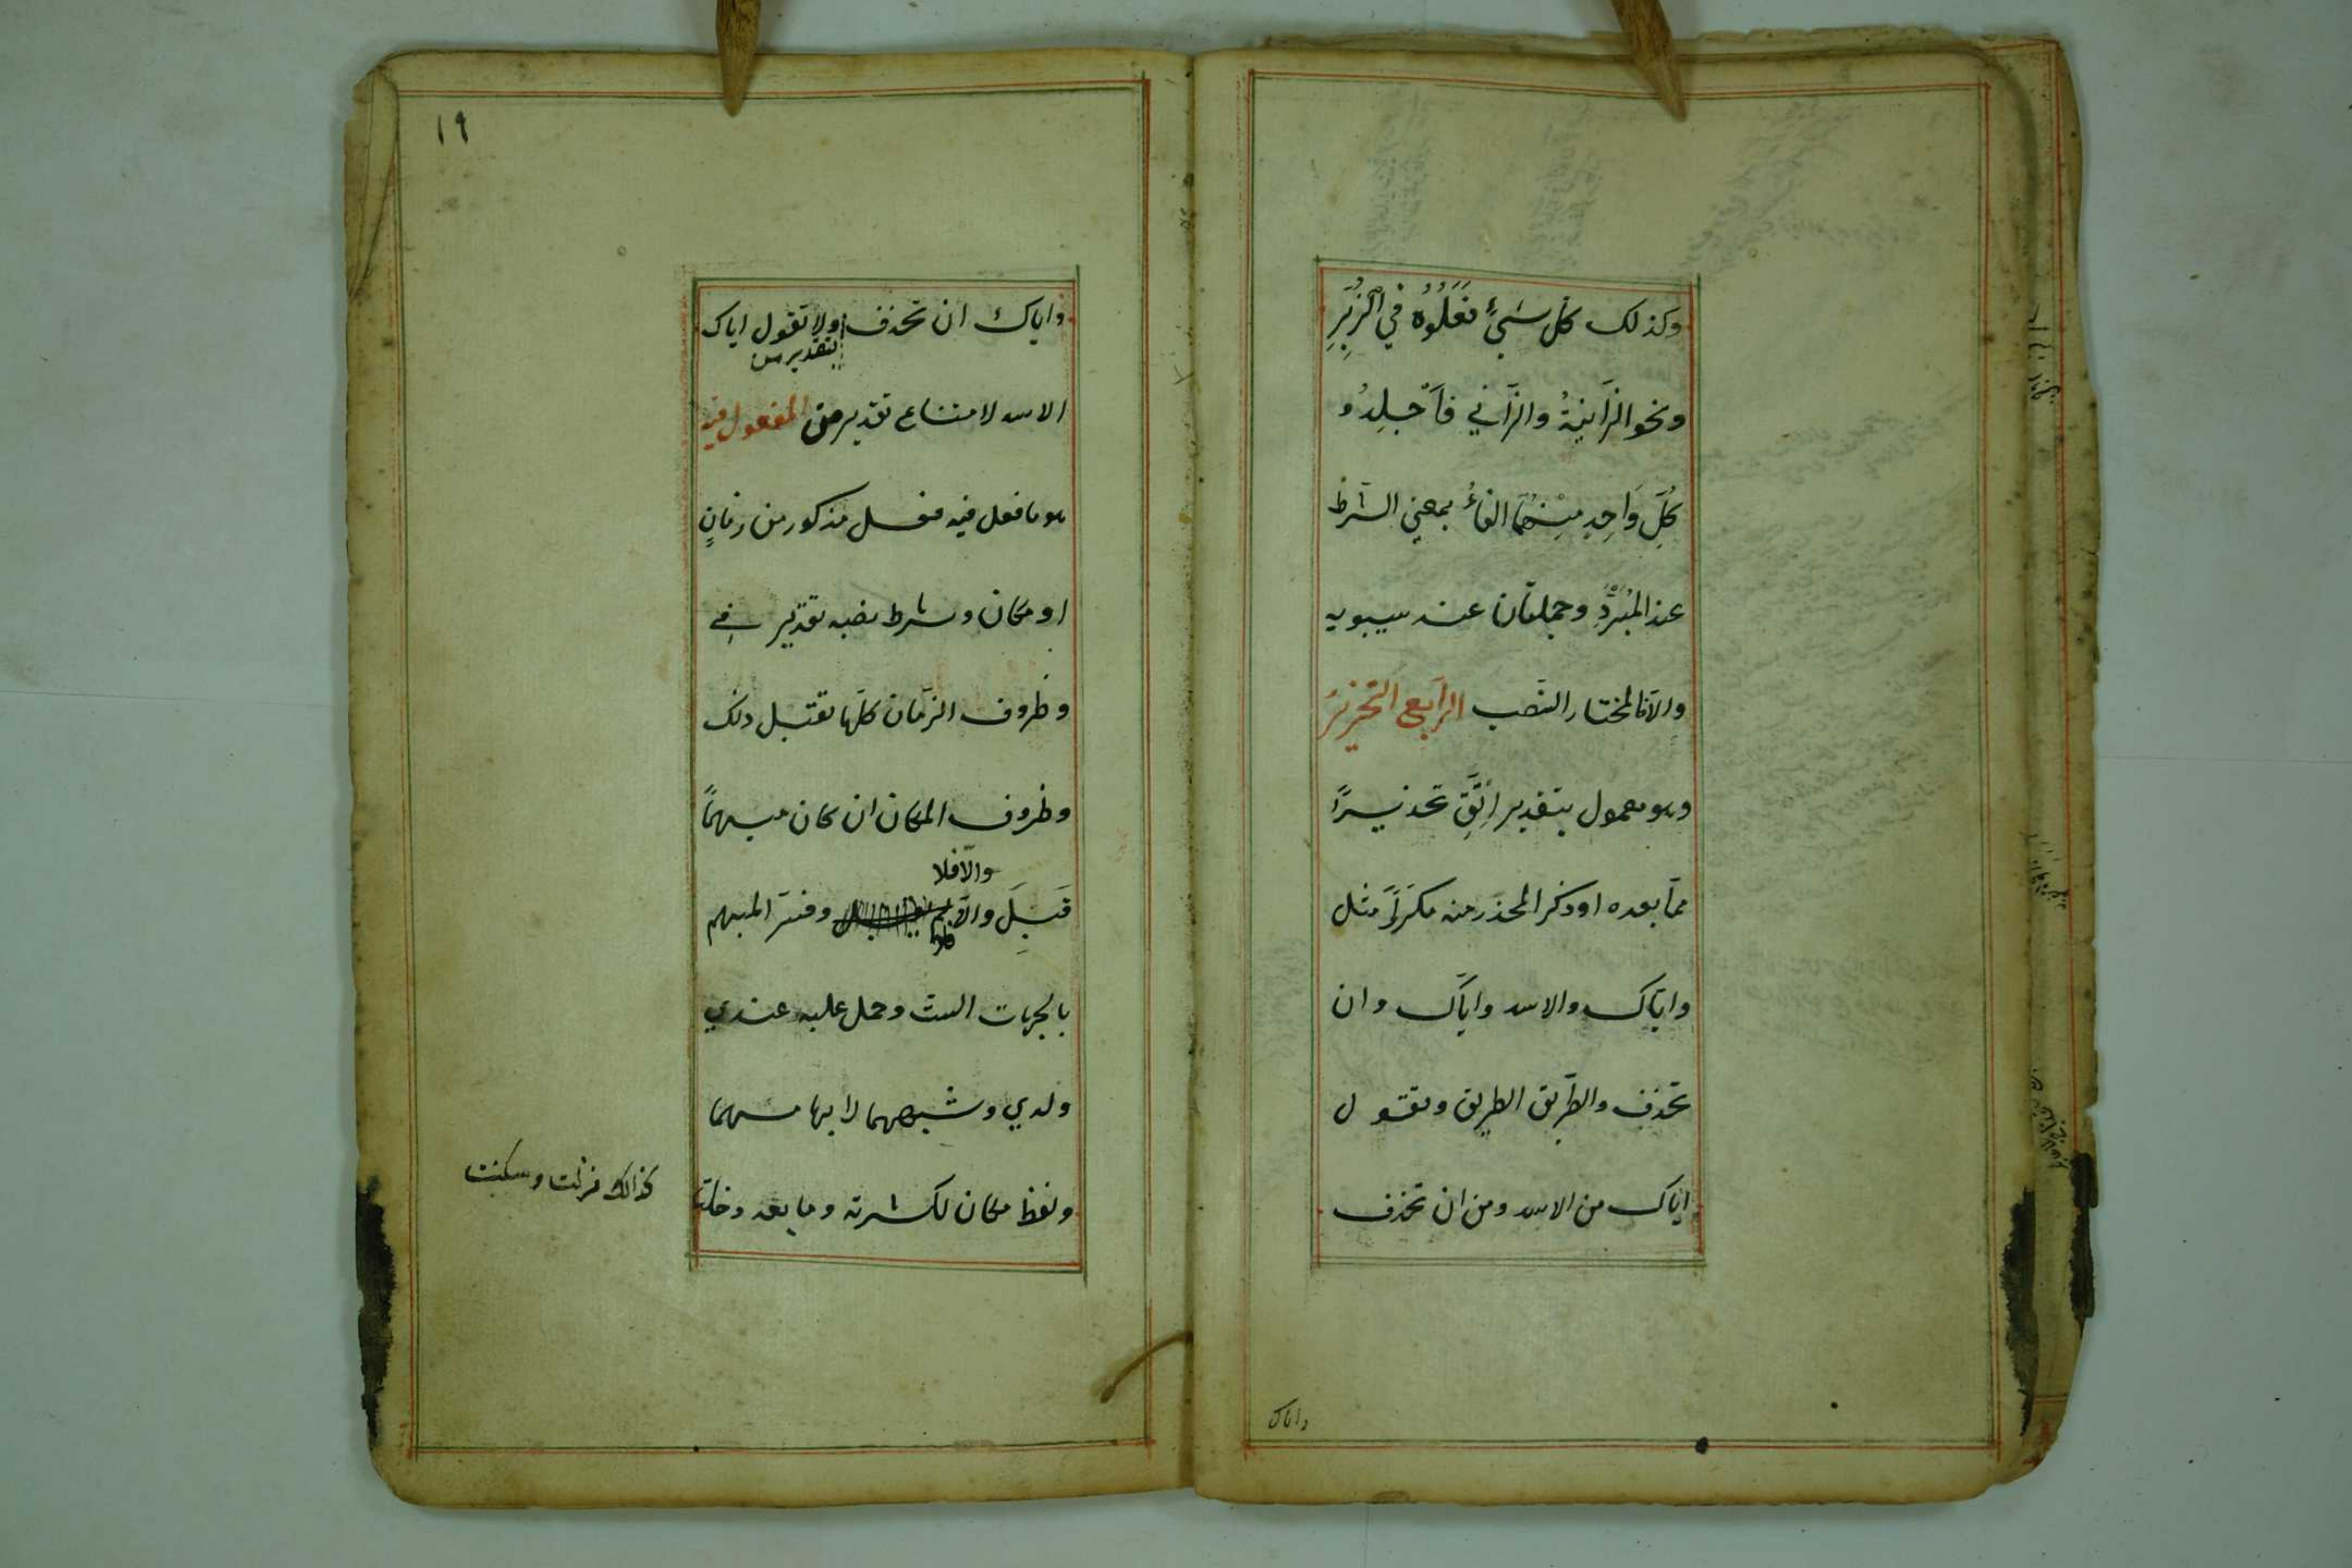 وكذلك كُلُّ شَيْءٍ فَعَلُوُهُ فِي الزُّبُرِ
ونحو الزَّانِيَةُ والزَّانِي فَاَجْلِدُو
كُلَّ وَاحِدٍ مِنْهُمَا الفاءُ بمعني الشرط
عند المُبَرِّدِ وجملتان عند سيبويه
والّا فالمختار النَّصب الرَّابع التحذيرُ
وهو معمول بتقدير اِتَّقِ تحذيرًا
ممّا بعده او ذكر المحذر منه مكرّرًا مثل
واياك والاسد واياك وان
تحذف والطَّريق الطريق وتقول
اياك من الاسد ومن ان تحذف
واياك
١٩
واياك ان تحذف ولا تقول اياك
بتقدير من
الاسد لامتناع تقدير من المفعول فيه
هو ما فعل فيه فعل مذكور من زمانٍ
او مكان وشرط نصبه تقدير في
وظروف الزمان كلّها تقبل ذلك
وظروف المكان ان كان مبهمًا
والّا فلا
قَبِلَ والّا فلا وفسّر المبهم
بالجهات الست وحمل عليه عندي
ولدي وشبههما لابهامهما
ولفظ مكان لكثرته وما بعد دخلت
كذالك نزلت وسكنت